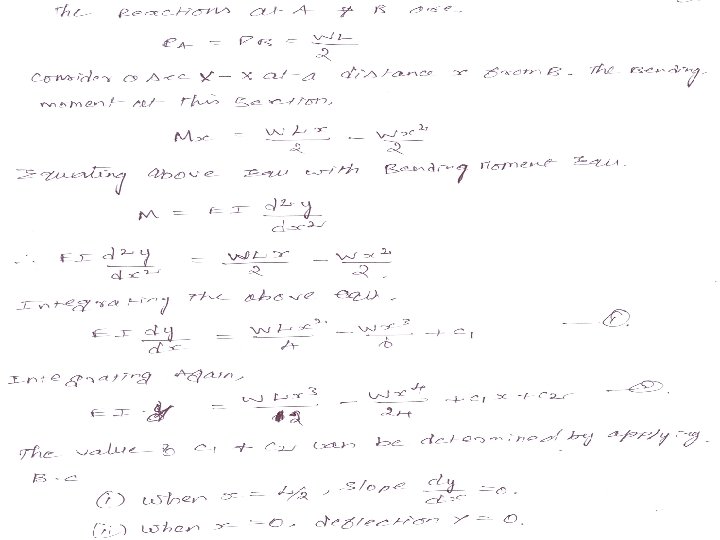 The Reactions at A & B are.
RA = RB = WL/2
Consider a sec X-X at a distance x from B. The Bending
moment at this section,
Mx = WLx/2 - Wx²/2
Equating above Equ with Bending Moment Equ.
M = EI d²y/dx²
∴ EI d²y/dx² = WLx/2 - Wx²/2.
Integrating the above equ.
EI dy/dx = WLx²/4 - Wx³/6 + C1 — ①.
Integrating Again,
EI·y = WLx³/12 - Wx⁴/24 + C1 x + C2 — ②.
The value of C1 & C2 can be determined by applying.
B.C
(i) When x = L/2, Slope dy/dx = 0.
(ii) When x = 0, deflection Y = 0.